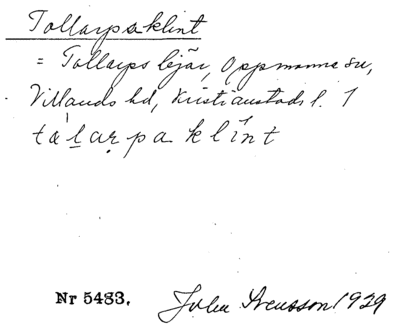 Tollarpaklint
= Tollarps bjär, Oppmanna sn,
Villands hd, Kristianstads l. 1
tɑ̀l̠ar̤pa klínt
Nr 5483. John Svensson 1929